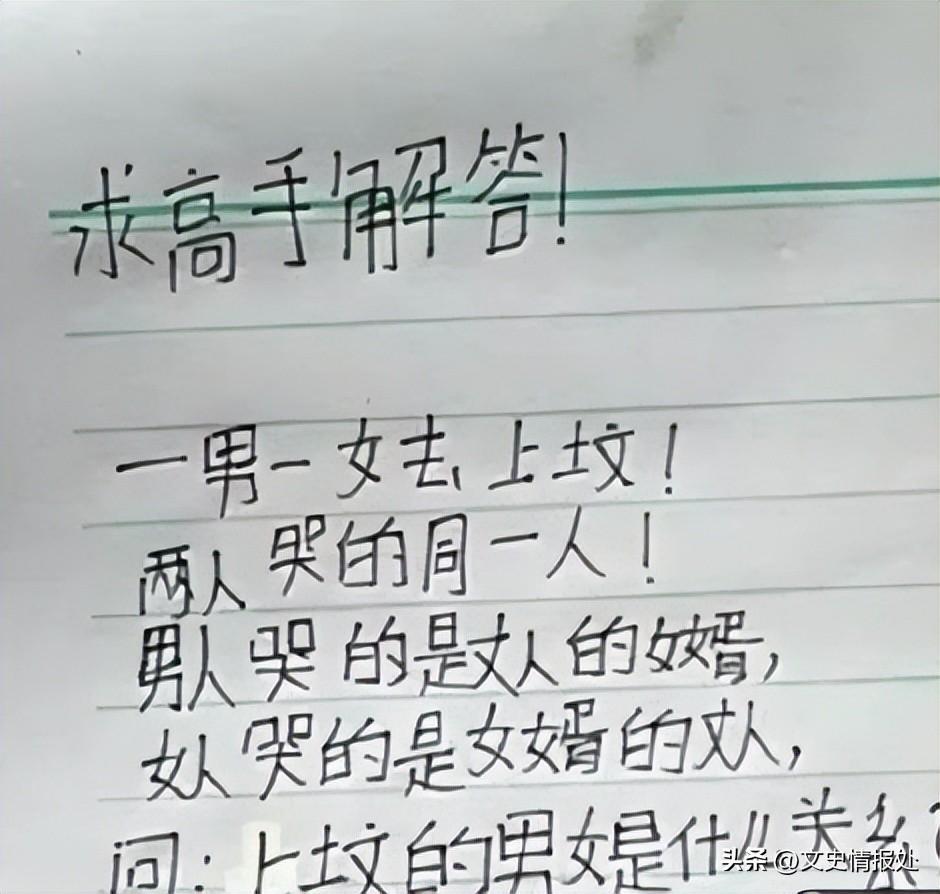 求高手解答!
一男一女去上坟!
两人哭的同一人!
男人哭的是丈人的女婿,
女人哭的是女婿的丈人,
问:上坟的男女是什川关系
头条 @文史情报处